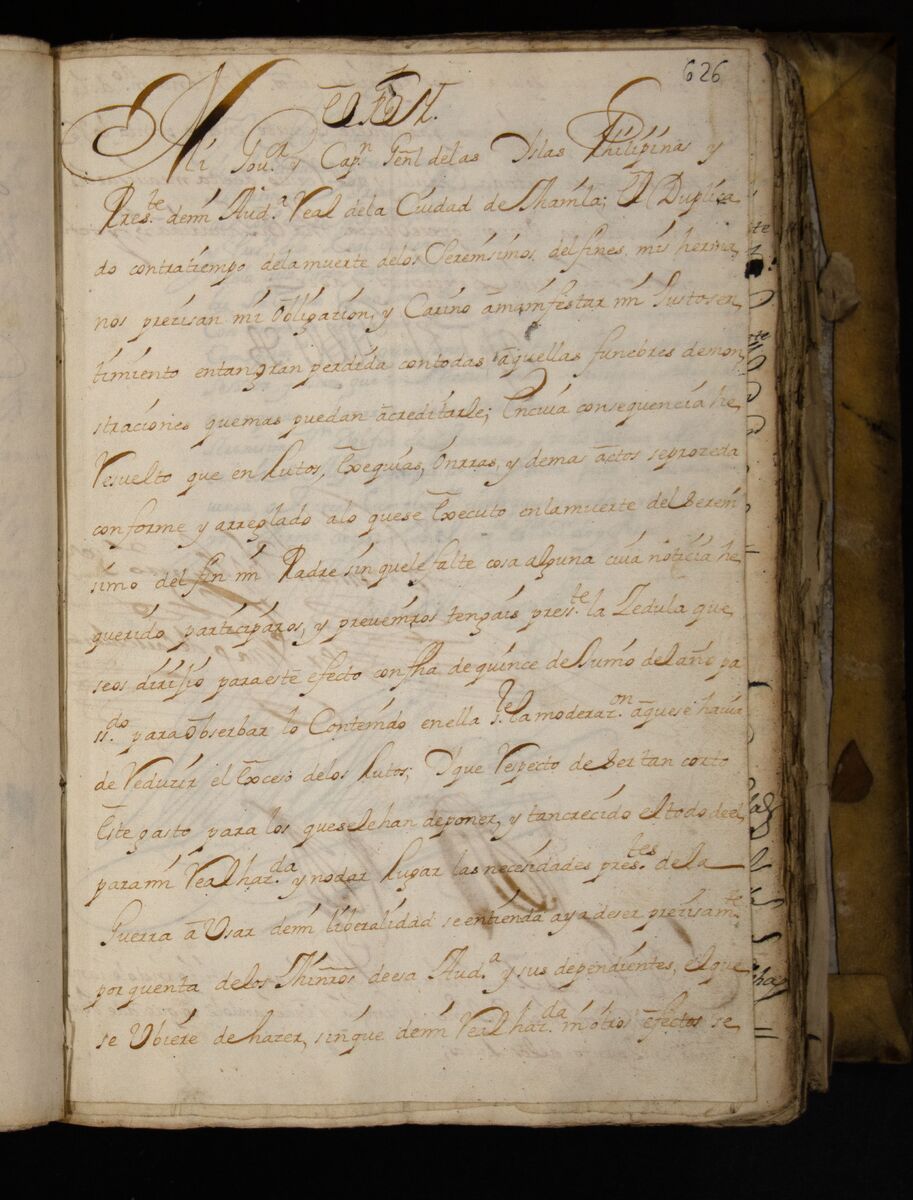 626
El Rey.
Mi Gov.r y Cap.n Genl delas Yslas Philipinas y
Press.te demi Aud.a Real dela Ciudad de Manila; El Duplica
do contratiempo dela muerte delos Serenisimos delfines mis herma
nos precisan mi obligacion, y Carino a manifestar mi Justo sen
timiento entan gran perdida contodas aquellas funebres demon
straciones quemas puedan acreditarle; En cuia consequencia he
Resuelto que en Lutos, Exequias, Onrras, y demas actos seprozeda
conforme y arreglado alo quese Executo enlamuerte del Sereni
simo delfin mi Padre sin quele falte cosa alguna cuia noticia he
querido participaros, y preveniros tengais pres.te la Zedula que
seos dirijio paraeste efecto con fha de quince de Junio del año pa
ss.do para observar lo Contenido enella s.re la moderaz.on aquese havia
de Reducir el Exceso delos Lutos; Y que Respecto de ser tan corto
Este gasto para los queselehan deponer, y tan crecido el todo deel
para mi Real haz.da y nodar lugar las necesidades pres.tes de la
Guerra a Usar demi liberalidad se entienda aya deser precisam.te
por quenta delos Minros deesa Aud.a y sus dependientes, el que
se Ubiere de hazer, sin que demi Real haz.da ni otros efectos se